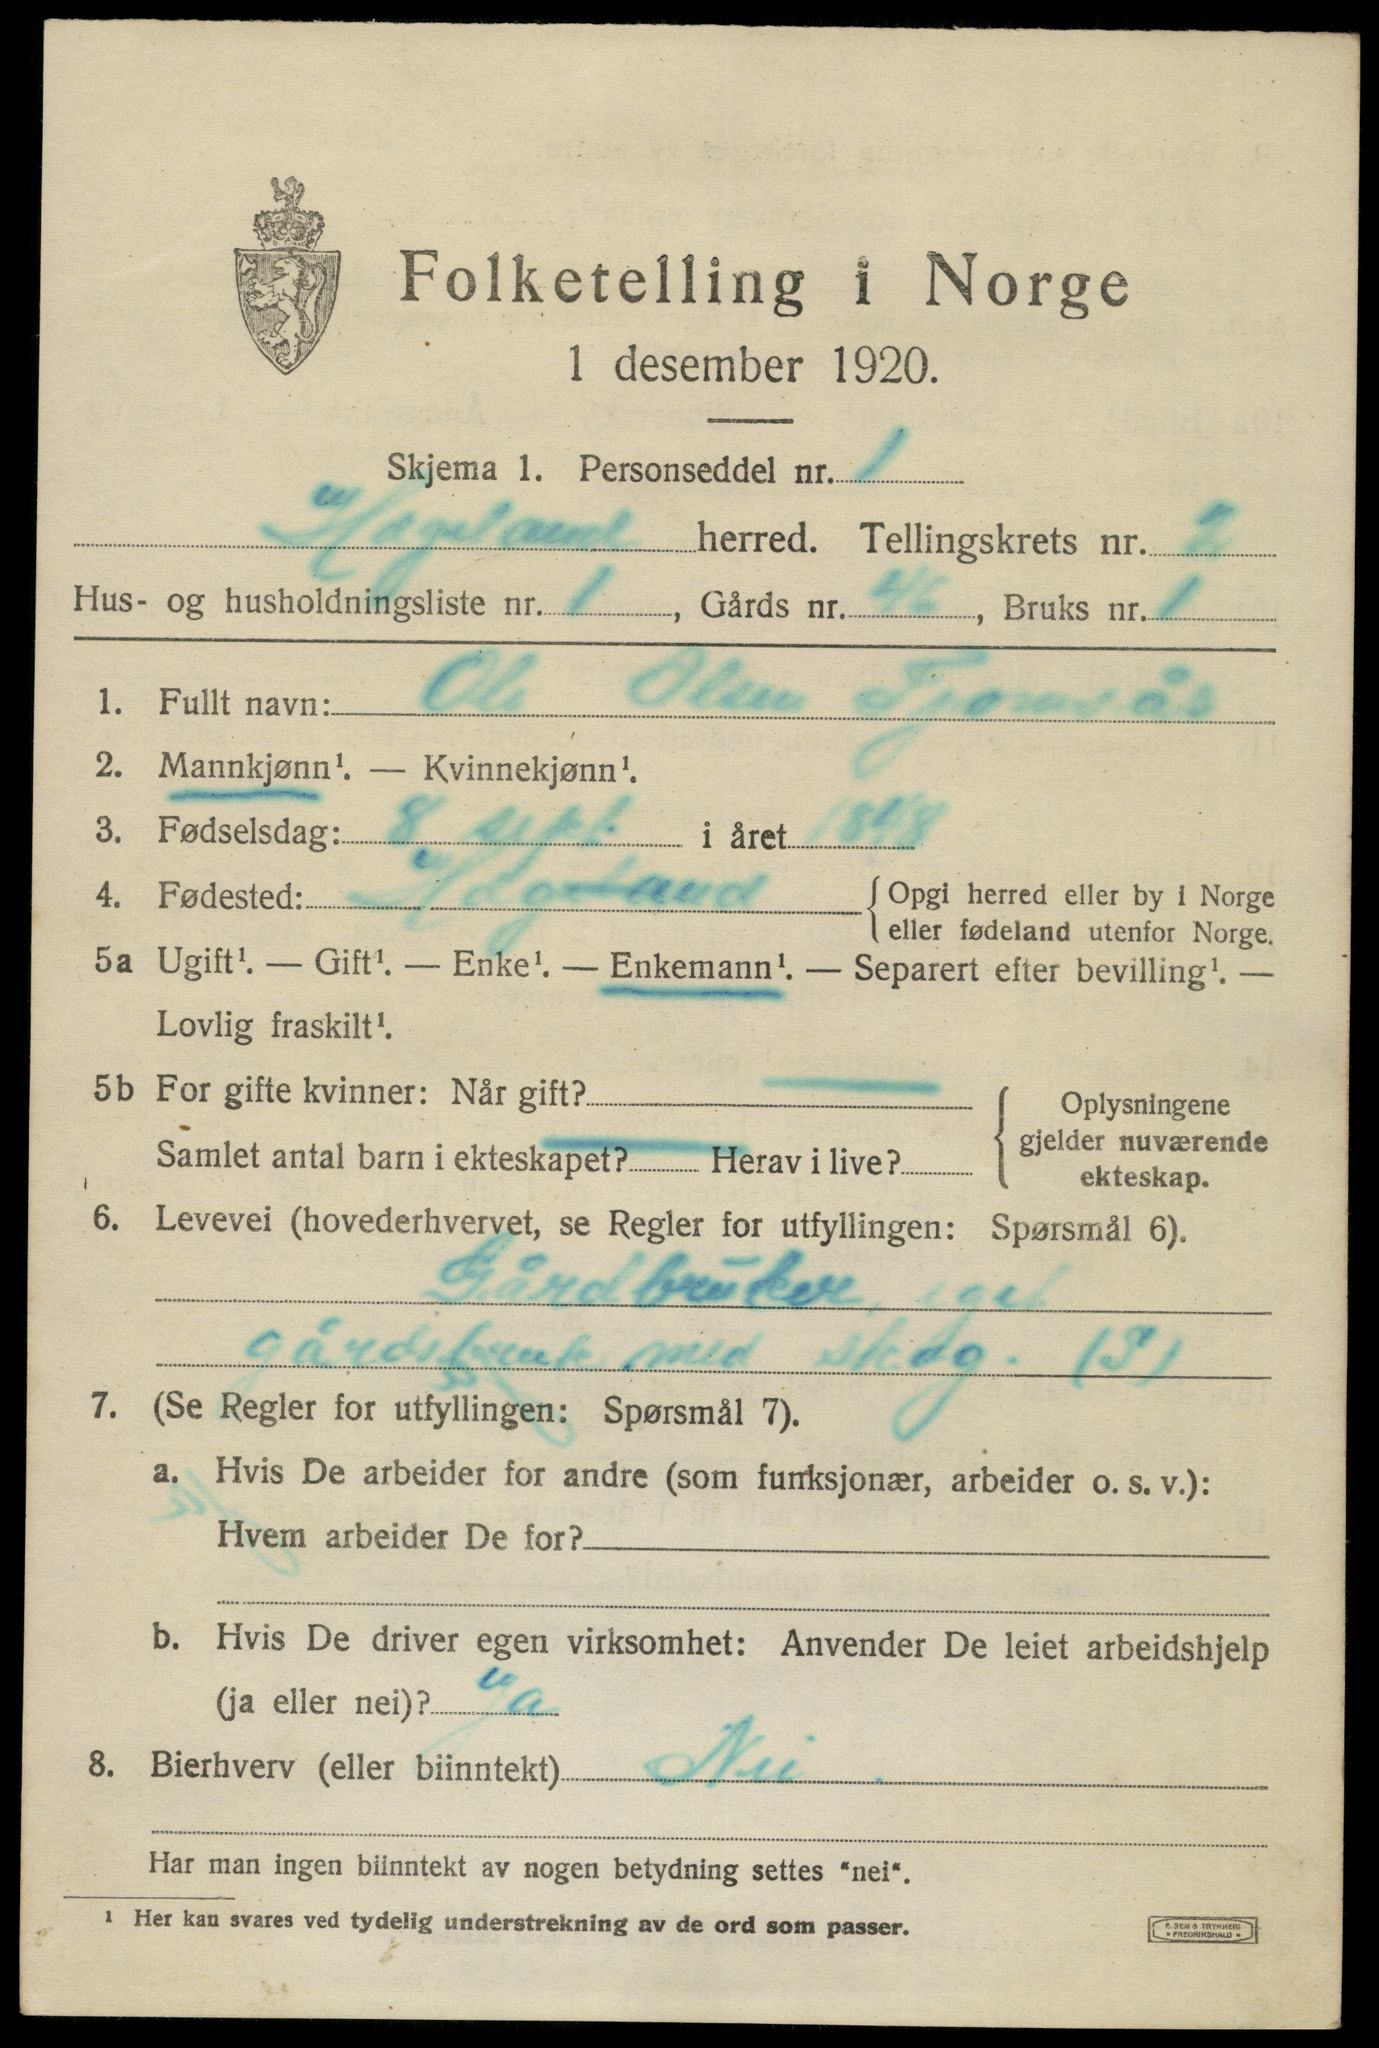 Folketelling i Norge
1 desember 1920.
Skjema 1. Personseddel nr. 1
Hægeland herred. Tellingskrets nr. 2
Hus- og husholdningsliste nr. 1, Gårds nr. Bruks nr. 1
1. Fullt navn: Ole Olsen Fjomsås
2. Mannkjønn¹. — Kvinnekjønn¹.
3. Fødselsdag: 8 sept. i året 1848
4. Fødested: Hægeland {Opgi herred eller by i Norge
eller fødeland utenfor Norge.
5a Ugift¹. — Gift¹. — Enke¹. — Enkemann¹. — Separert efter bevilling¹. —
Lovlig fraskilt¹.
5b For gifte kvinner: Når gift? —
Samlet antal barn i ekteskapet? — Herav i live?
{Oplysningene
gjelder nuværende
ekteskap.
6. Levevei (hovederhvervet, se Regler for utfyllingen: Spørsmål 6).
Gårdbruker, eget
gårdsbruk med skog. (S)
7. (Se Regler for utfyllingen: Spørsmål 7).
a. Hvis De arbeider for andre (som funksjonær, arbeider o. s. v.):
Hvem arbeider De for?
b. Hvis De driver egen virksomhet: Anvender De leiet arbeidshjelp
(ja eller nei)? ja
8. Bierhverv (eller biinntekt) Nei.
Har man ingen biinntekt av nogen betydning settes "nei".
¹ Her kan svares ved tydelig understrekning av de ord som passer.
E. SEM'S TRYKKERI
• FREDRIKSHALD •